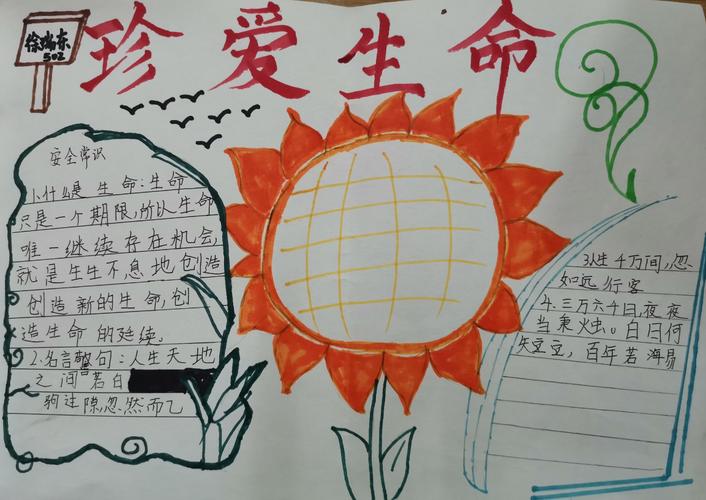 徐瑞东
502
珍爱生命
安全常识
1.什么是生命:生命
只是一个期限,所以生命
唯一继续存在机会,
就是生生不息地创造
创造新的生命,创
造生命的延续。
2.名言警句:人生天地
之间若白
驹过隙,忽然而已
3.人生千万间,忽
如远行客
4.三万六千日,夜夜
当秉烛。白日何
短,百年若海易